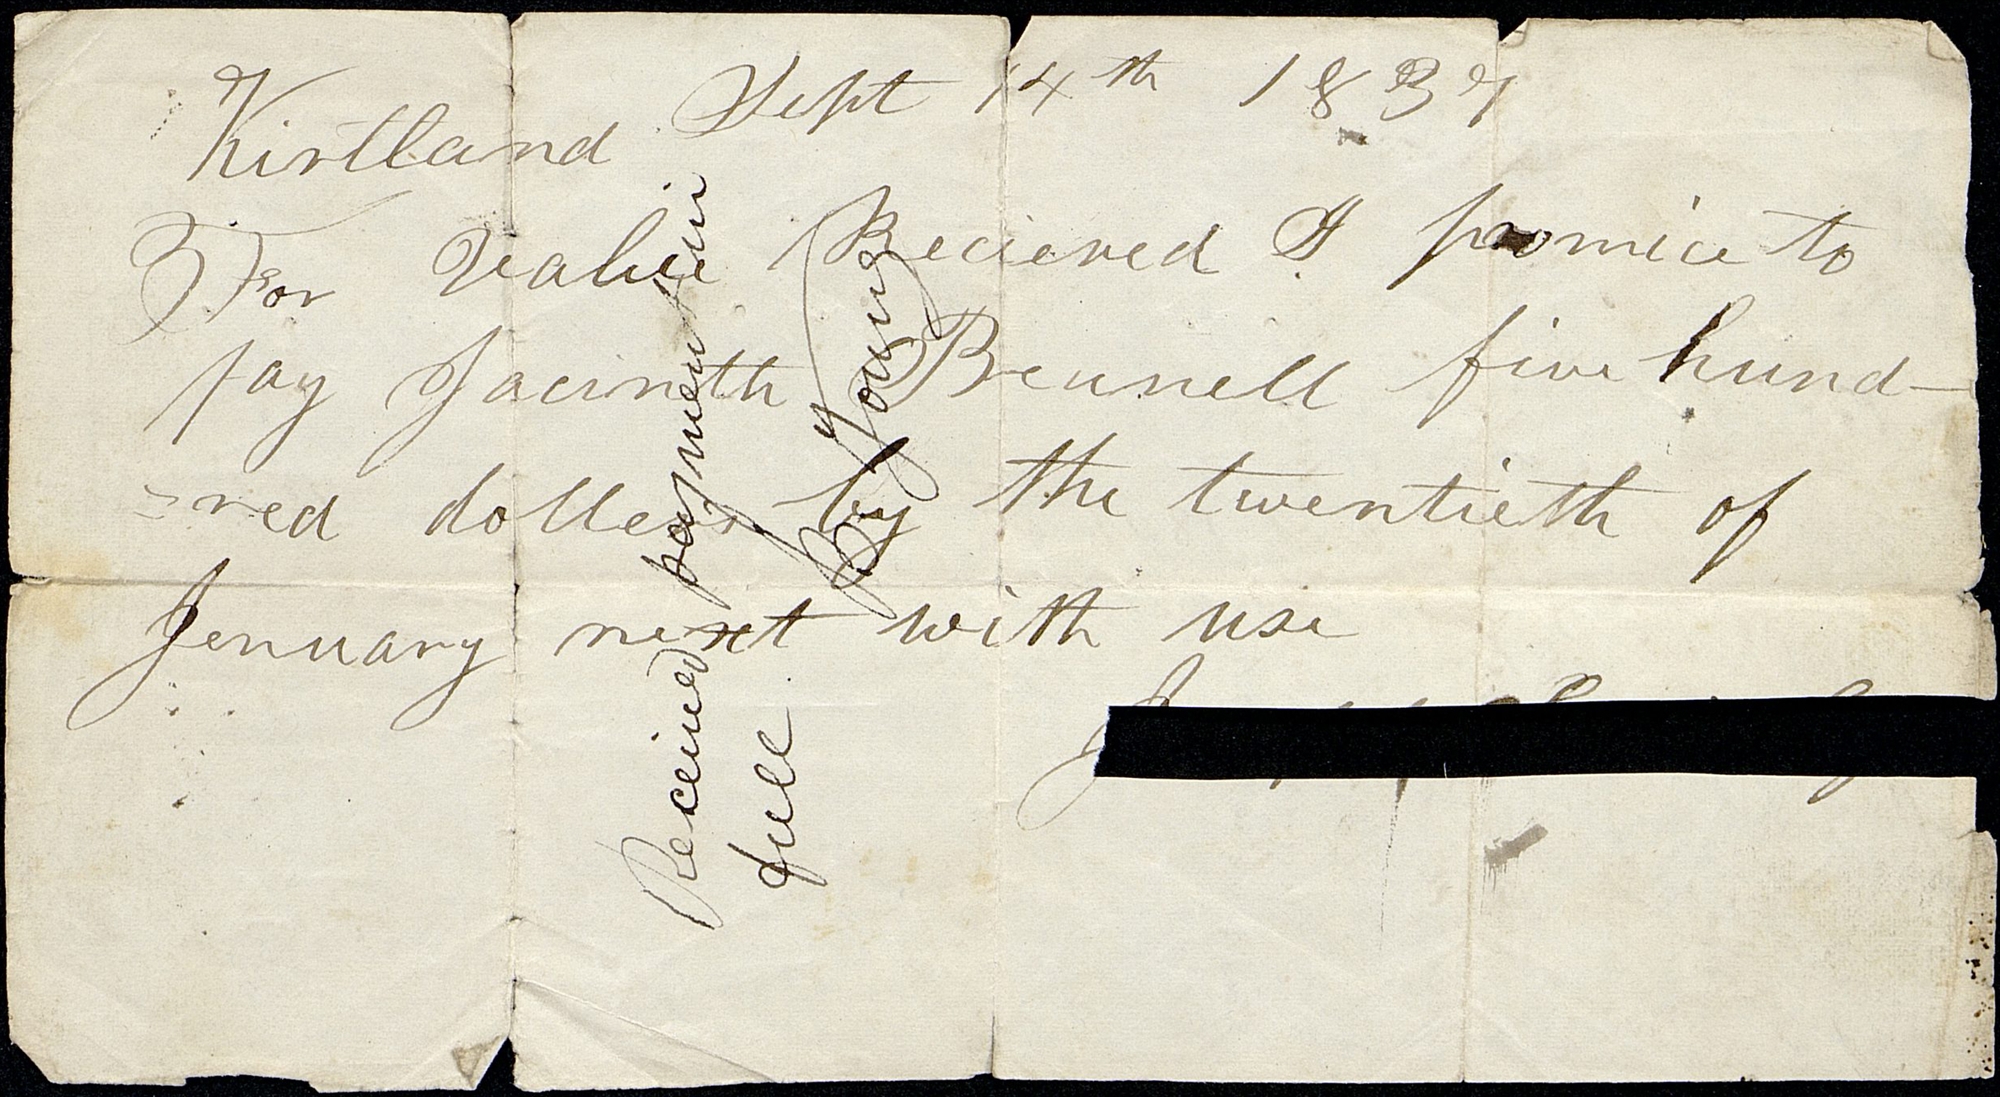 Kirtland Sept 14th 1837
For Value Recieved I promice to
pay Jacinth Bennell five hund-
=red dollers by the twentieth of
Jenuary next with use
Received payment in
full
B Young